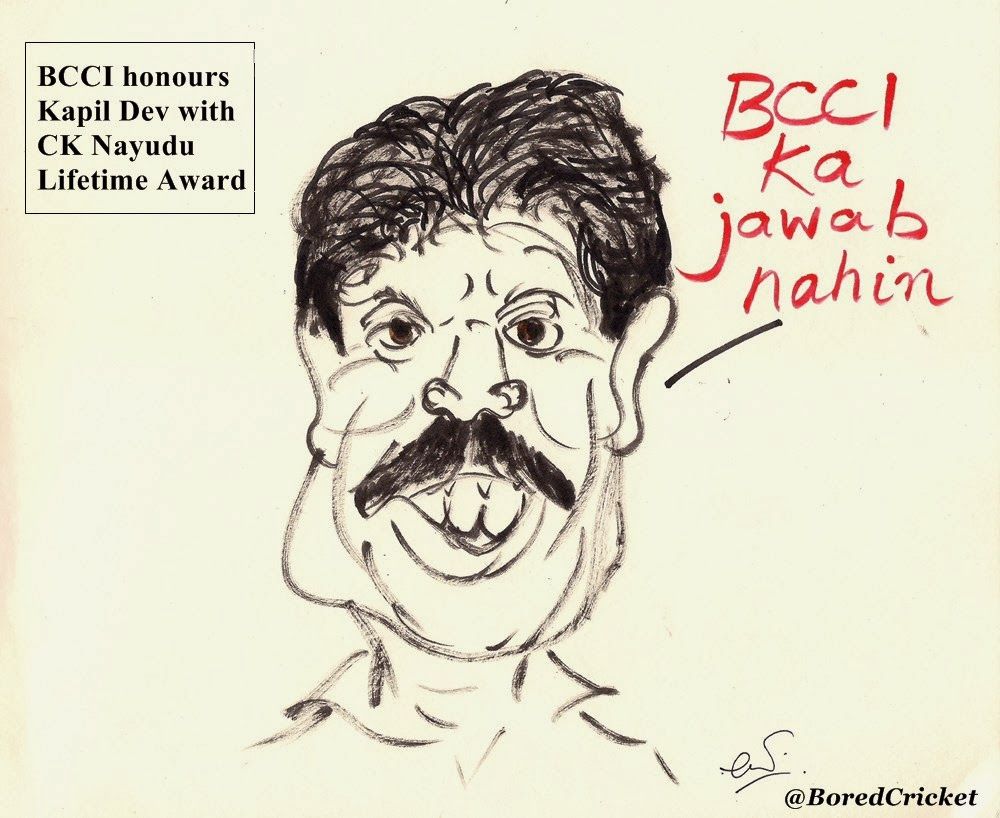 BCCI honours
Kapil Dev with
CK Nayudu
Lifetime Award
BCCI
ka
jawab
nahin
@BoredCricket